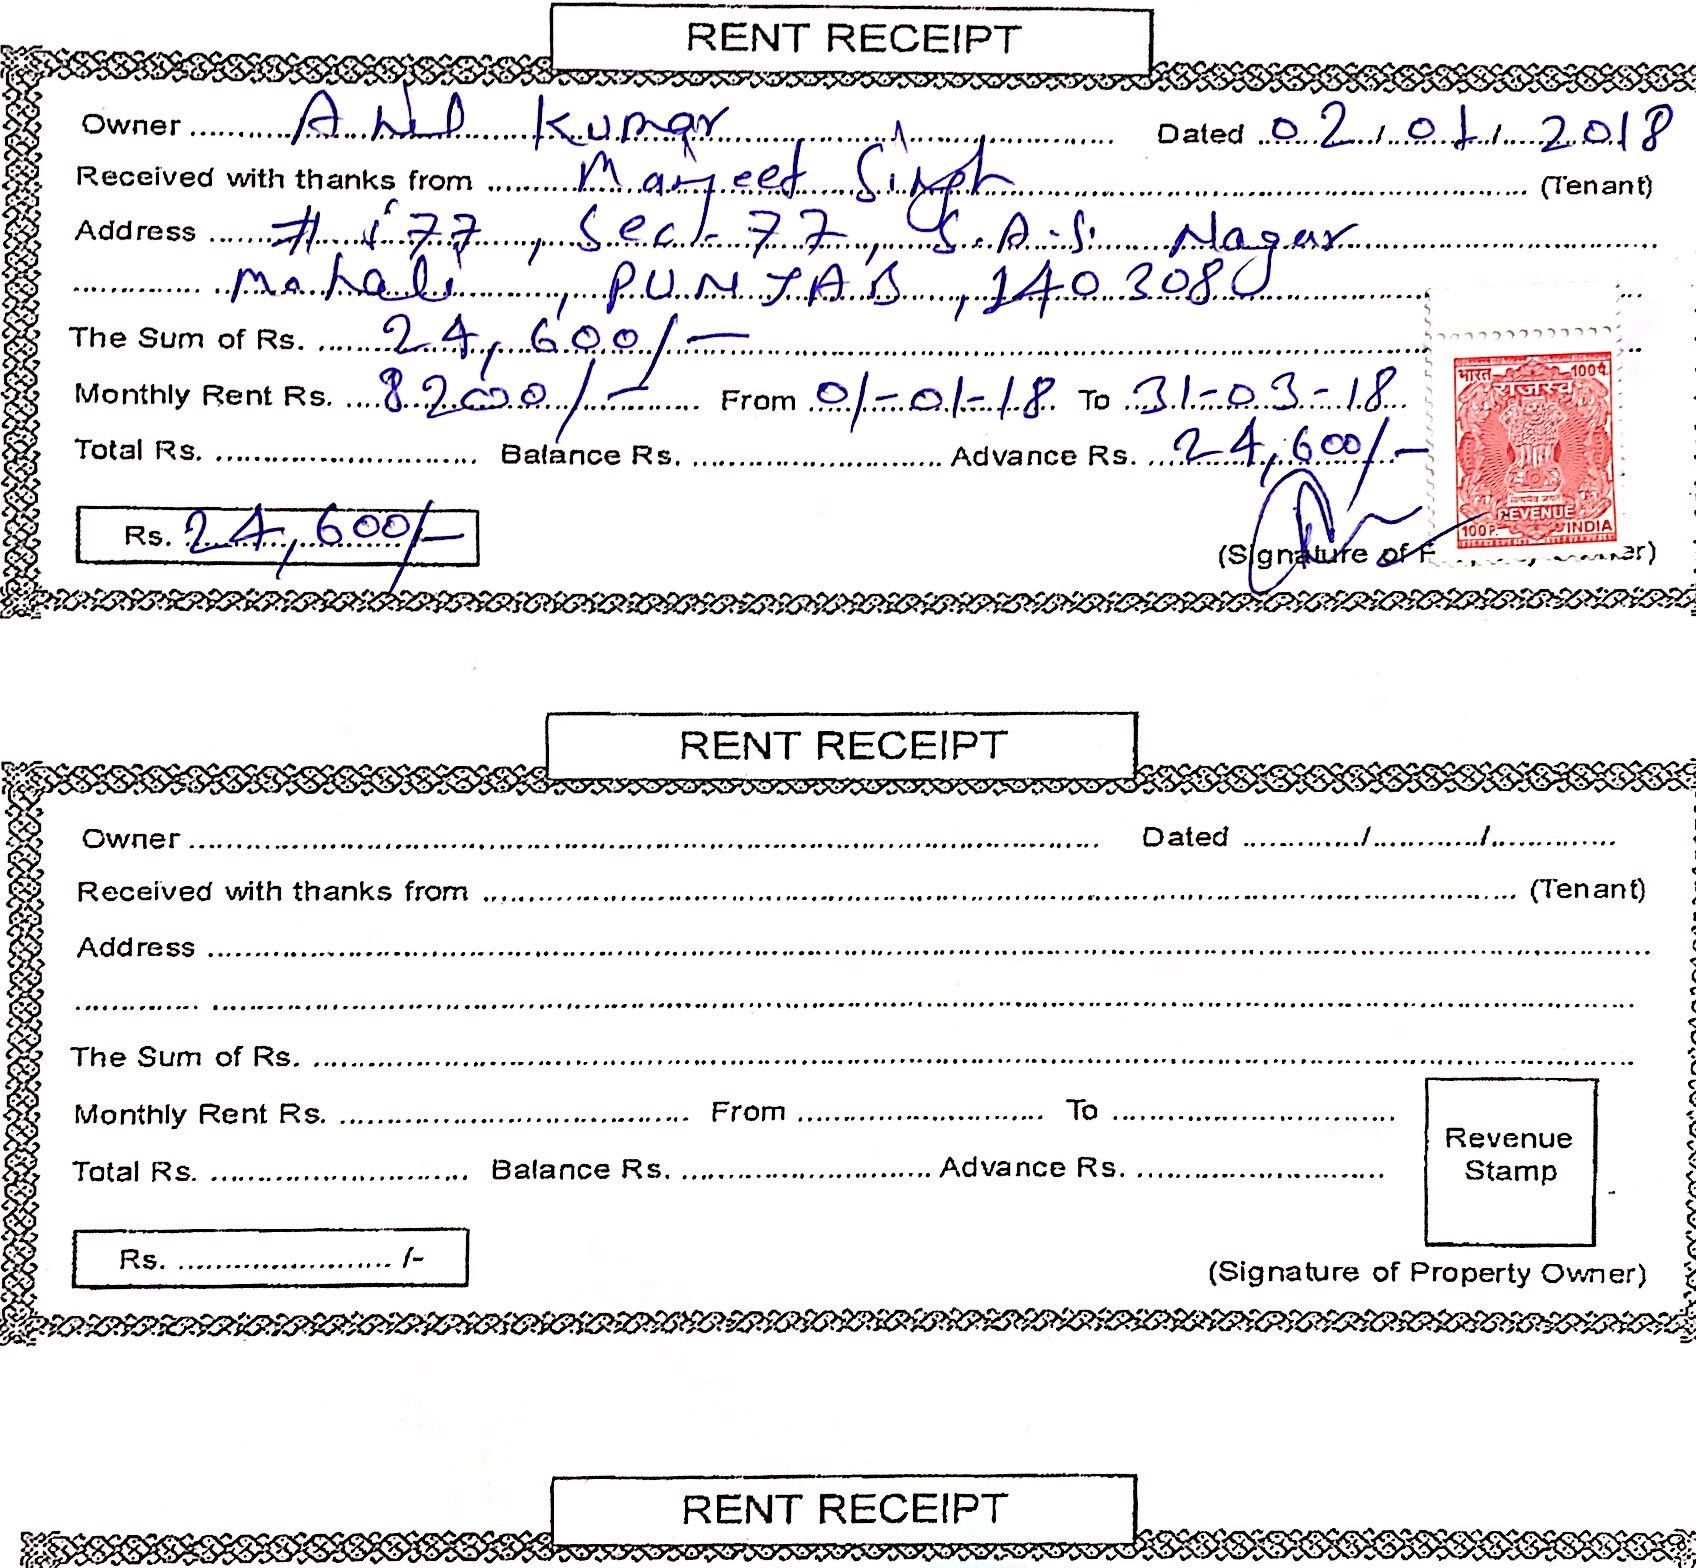 RENT RECEIPT
Owner ............ Anil Kumar ............ Dated 02/01/2018
Received with thanks from ............ Manjeet Singh ............ (Tenant)
Address ............ # 177, Sec-77, S.A.S. Nagar
Mohali, PUNJAB, 140308
The Sum of Rs. ...... 24,600/-
Monthly Rent Rs. .... 8200/- From 01-01-18 To 31-03-18
Total Rs. ............ Balance Rs. ............ Advance Rs. ... 24,600/-
भारत 100 प.
राजस्व
REVENUE
100 P. INDIA
Rs. 24,600/-
(Signature of
RENT RECEIPT
Owner ............ Dated ............/............/............
Received with thanks from ............ (Tenant)
Address ............
The Sum of Rs. ............
Monthly Rent Rs. ............ From ............ To ............
Total Rs. ............ Balance Rs. ............ Advance Rs. ............
Revenue
Stamp
Rs. ............ /-
(Signature of Property Owner)
RENT RECEIPT